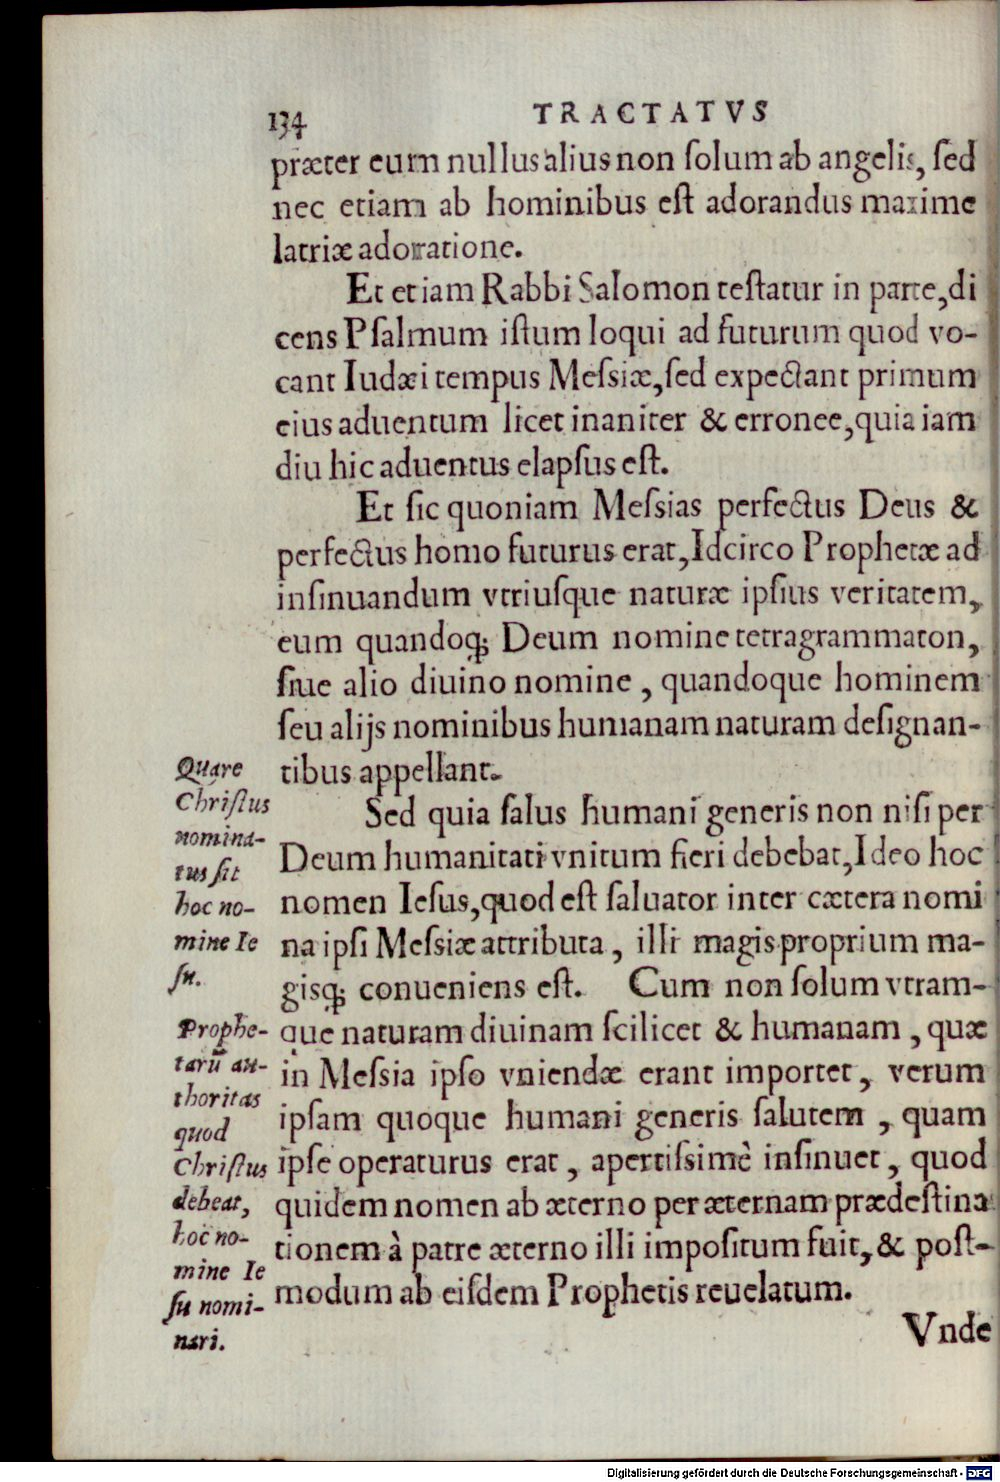 134 TRACTATVS
præter eum nullus alius non ſolum ab angelis, ſed
nec etiam ab hominibus eſt adorandus maxime
latriæ adoratione.
Et etiam Rabbi Salomon teſtatur in parte, di
cens Pſalmum iſtum loqui ad futurum quod vo-
cant Iudæi tempus Meſsiæ, ſed expectant primum
eius aduentum licet inaniter & erronee, quia iam
diu hic aduentus elapſus eſt.
Et ſic quoniam Meſsias perfectus Deus &
perfectus homo futurus erat, Idcirco Prophetæ ad
inſinuandum vtriuſque naturæ ipſius veritatem,
eum quandoq; Deum nomine tetragrammaton,
ſiue alio diuino nomine, quandoque hominem
ſeu alijs nominibus humanam naturam deſignan-
tibus appellant.
Sed quia ſalus humani generis non niſi per
Deum humanitati vnitum fieri debebat, Ideo hoc
nomen Ieſus, quod eſt ſaluator inter cætera nomi
na ipſi Meſsiæ attributa, illi magis proprium ma-
gisq; conueniens eſt. Cum non ſolum vtram-
que naturam diuinam ſcilicet & humanam, quæ
in Meſsia ipſo vniendæ erant importet, verum
ipſam quoque humani generis ſalutem, quam
ipſe operaturus erat, apertiſsimè inſinuet, quod
quidem nomen ab æterno per æternam prædeſtina
tionem à patre æterno illi impoſitum fuit, & poſt-
modum ab eiſdem Prophetis reuelatum.
Vnde
Quare
Chriſtus
nomina-
tus ſit
hoc no-
mine Ie
ſu.
Prophe-
tarū au-
thoritas
quod
Chriſtus
debeat,
hoc no-
mine Ie
ſu nomi-
nari.
Digitalisierung gefördert durch die Deutsche Forschungsgemeinschaft - DFG